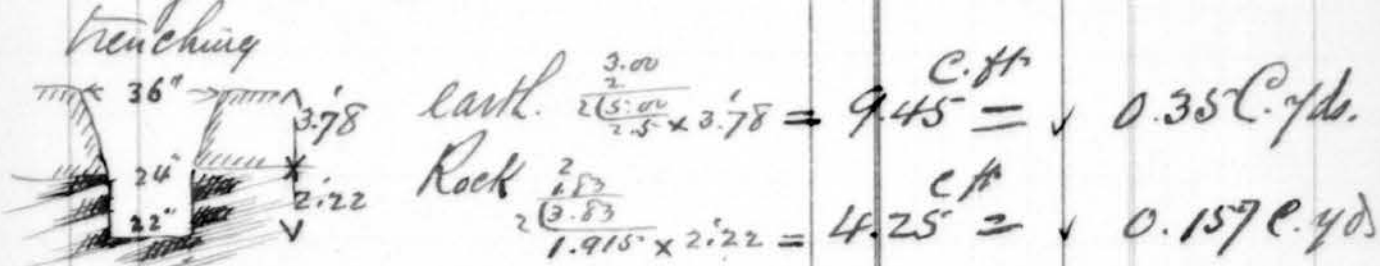 trenching
36"
3.'78
24"
2.'22
22"
earth. 3.00
2
2(5.00
2.5 × 3.'78 = 9.45 C.ft = ✓ 0.35 C.yds.
Rock 2
1.83
2(3.83
1.915 × 2.'22 = 4.25 c ft = ✓ 0.157 C.yds